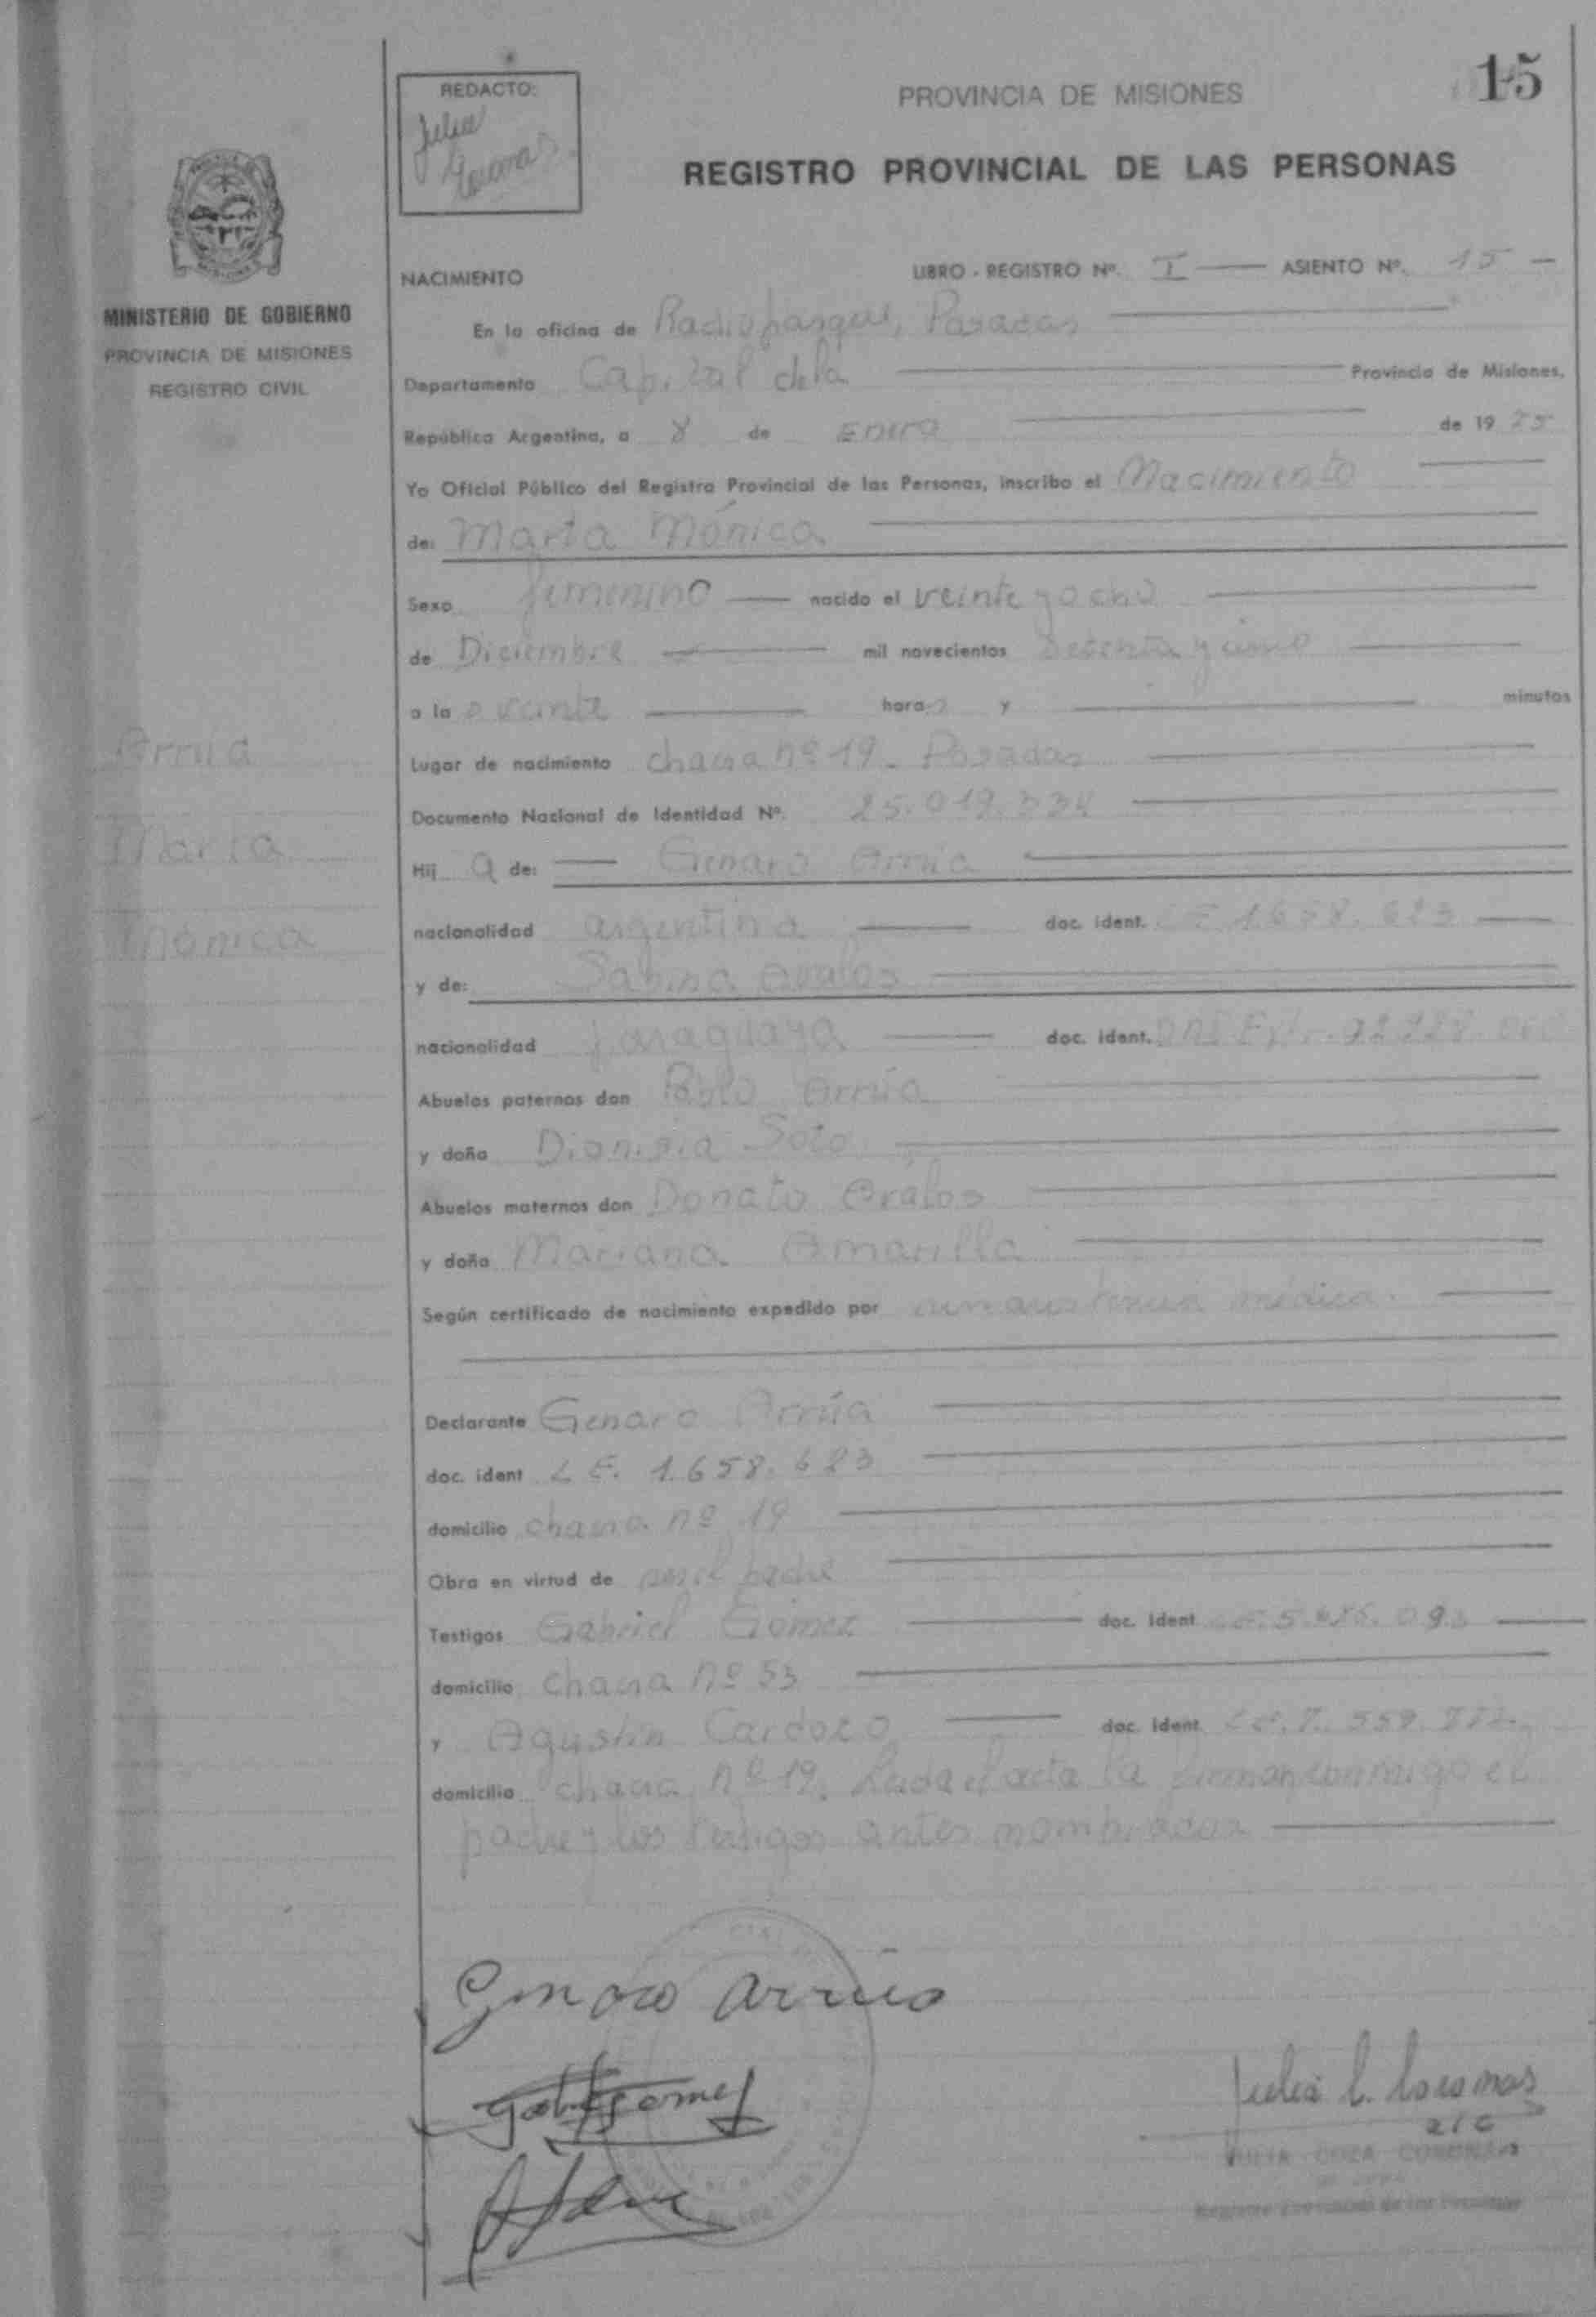 15
REDACTO:
Julia
PROVINCIA DE MISIONES
REGISTRO PROVINCIAL DE LAS PERSONAS
MINISTERIO DE GOBIERNO
PROVINCIA DE MISIONES
REGISTRO CIVIL
NACIMIENTO
LIBRO - REGISTRO Nº. I ASIENTO Nº. 15
En la oficina de Radioparque, Posadas
Departamento Capital de la Provincia de Misiones,
República Argentina, a 8 de Enero de 19
Yo Oficial Público del Registro Provincial de las Personas, inscribo el Nacimiento
de: Marta Mónica
Sexo femenino nacido el veinte y ocho
de Diciembre mil novecientos
a la s veinte horas y minutos
Lugar de nacimiento chacra nº 19. Posadas
Documento Nacional de Identidad Nº. 25.019.334
Hij a de: Genaro Arrúa
nacionalidad argentina doc. ident. LE 1.658.623
y de: Sabina Avalos
nacionalidad paraguaya doc. ident.
Abuelos paternos don Pablo Arrúa
y doña Dionisia Soto
Abuelos maternos don Donato Avalos
y doña Mariana Amarilla
Según certificado de nacimiento expedido por médica.
Declarante Genaro Arrúa
doc. ident L E. 1.658.623
domicilio chacra nº 19
Obra en virtud de ser el padre
Testigos Gabriel Gómez doc. ident
domicilio chacra nº 53
y Agustín Cardozo doc. ident
domicilio chacra nº 19. Leida el acta la firman conmigo el
padre y los testigos antes nombrados
Arrúa
Marta
Mónica
Genaro Arrúa
Julia
a/c
JULIA
Registro Provincial de las Personas